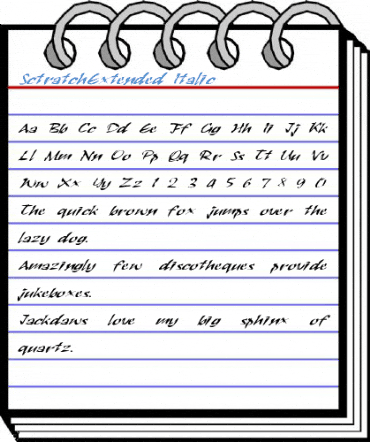 SctratchExtended Italic
Aa Bb Cc Dd Ee Ff Gg Hh Ii Jj Kk
Ll Mm Nn Oo Pp Qq Rr Ss Tt Uu Vv
Ww Xx Yy Zz 1 2 3 4 5 6 7 8 9 0
The quick brown fox jumps over the
lazy dog.
Amazingly few discotheques provide
jukeboxes.
Jackdaws love my big sphinx of
quartz.